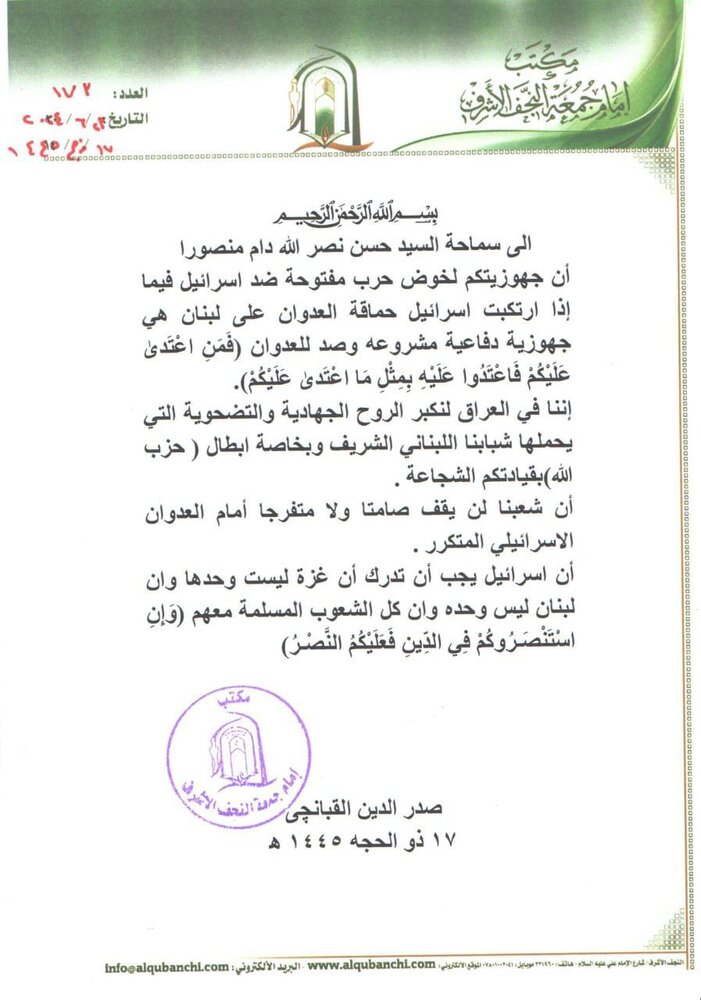 مكتب
إمام جمعة النجف الأشرف
العدد: ١٧٢
التاريخ
بسم الله الرحمن الرحيم
الى سماحة السيد حسن نصر الله دام منصورا
أن جهوزيتكم لخوض حرب مفتوحة ضد اسرائيل فيما
إذا ارتكبت اسرائيل حماقة العدوان على لبنان هي
جهوزية دفاعية مشروعه وصد للعدوان (فَمَنِ اعْتَدىٰ
عَلَيْكُمْ فَاعْتَدُوا عَلَيْهِ بِمِثْلِ مَا اعْتَدىٰ عَلَيْكُمْ).
إننا في العراق لنكبر الروح الجهادية والتضحوية التي
يحملها شبابنا اللبناني الشريف وبخاصة ابطال ( حزب
الله)بقيادتكم الشجاعة .
أن شعبنا لن يقف صامتا ولا متفرجا أمام العدوان
الاسرائيلي المتكرر .
أن اسرائيل يجب أن تدرك أن غزة ليست وحدها وان
لبنان ليس وحده وان كل الشعوب المسلمة معهم (وَإِنِ
اسْتَنْصَرُوكُمْ فِي الدِّينِ فَعَلَيْكُمُ النَّصْرُ)
مكتب
إمام جمعة النجف الأشرف
صدر الدين القبانچي
١٧ ذو الحجه ١٤٤٥ هـ
النجف الأشرف/ شارع الإمام علي عليه السلام - هاتف: موبايل: الموقع الالكتروني: www.alqubanchi.com - البريد الألكتروني: info@alqubanchi.com